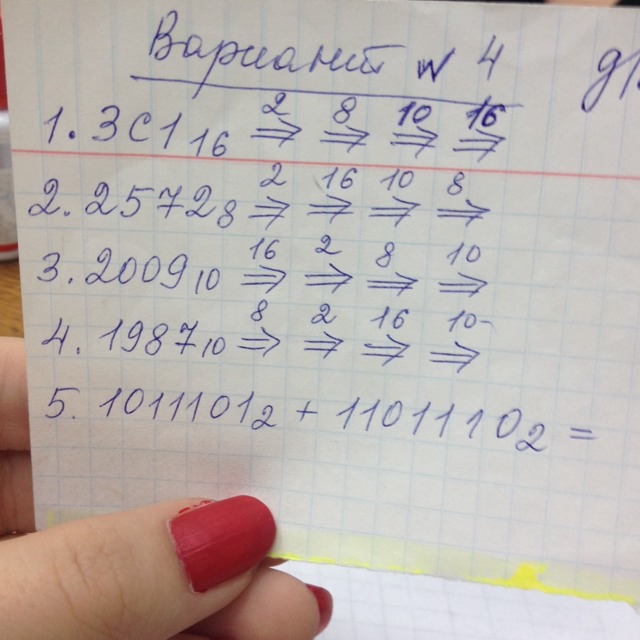 Вариант N 4
1. 3C1₁₆ 2⇒ 8⇒ 10⇒ 16⇒
2. 2572₈ 2⇒ 16⇒ 10⇒ 8⇒
3. 2009₁₀ 16⇒ 2⇒ 8⇒ 10⇒
4. 1987₁₀ 8⇒ 2⇒ 16⇒ 10⇒
5. 1011101₂ + 1101110₂ =